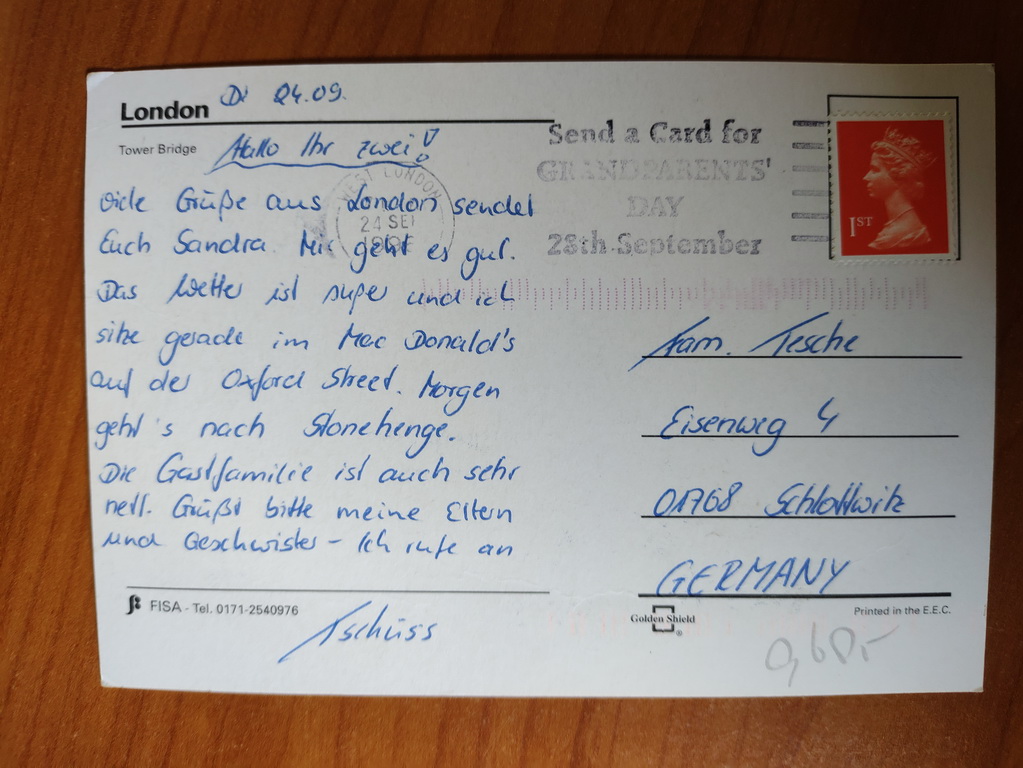 London Di 24.09.
Tower Bridge
Hallo Ihr zwei!
viele Grüße aus London sendet
Euch Sandra. Mir geht es gut.
Das Wetter ist super und ich
sitze gerade im Mac Donald's
auf der Oxford Street. Morgen
geht's nach Stonehenge.
Die Gastfamilie ist auch sehr
nett. Grüßt bitte meine Eltern
und Geschwister - Ich rufe an
Tschüss
FISA - Tel. 0171-2540976
WEST LONDON
24 SEP
Send a Card for
GRANDPARENTS'
DAY
28th September
1ST
Fam. Tesche
Eisenweg 4
01768 Schlottwitz
GERMANY
Golden Shield
®
Printed in the E.E.C.